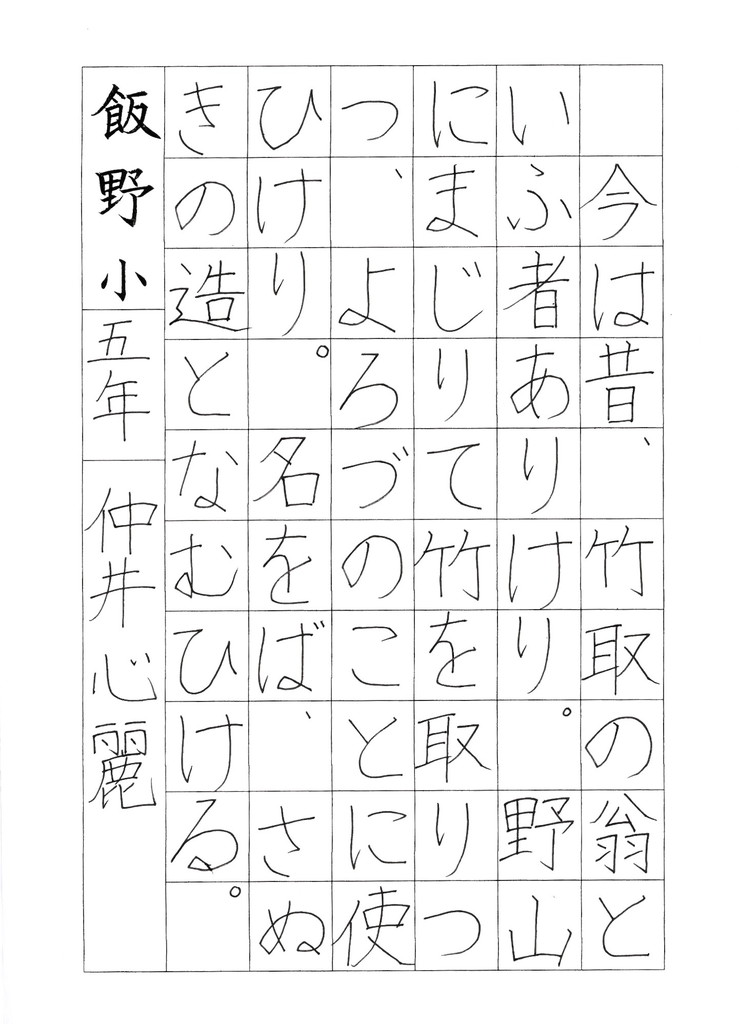 今は昔、竹取の翁と
いふ者ありけり。野山
にまじりて竹を取りつ
つ、よろづのことに使
ひけり。名をば、さぬ
きの造となむひける。
飯野小 五年 仲井心麗